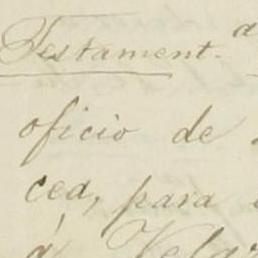 Testament.a
oficio de
cea, para
á Velaz